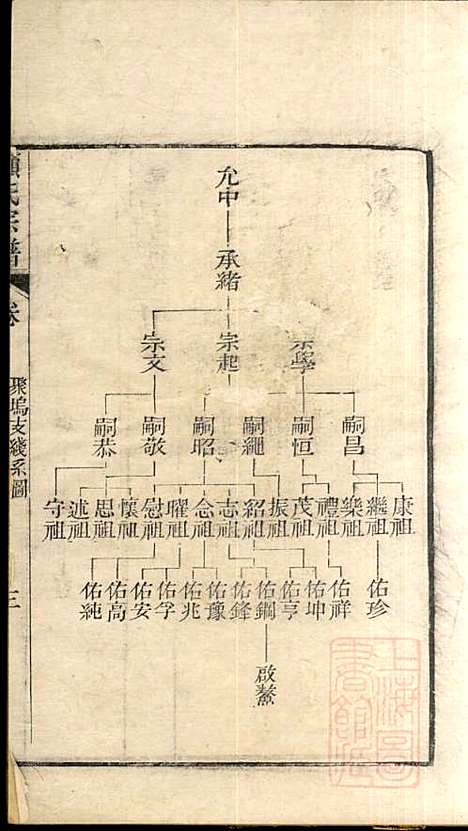 允中
承緒
宗學
宗起
宗文
嗣昌
嗣恒
嗣繩
嗣昭
嗣敬
嗣恭
康祖
繼祖
樂祖
禮祖
茂祖
振祖
紹祖
志祖
念祖
曜祖
慰祖
懷祖
思祖
述祖
守祖
佑珍
佑祥
佑坤
佑亨
佑鋼
佑鋒
佑豫
佑兆
佑孚
佑安
佑高
佑純
啟鰲
氏宗譜
卷
聚塢支綫系圖
三
上海圖書館藏